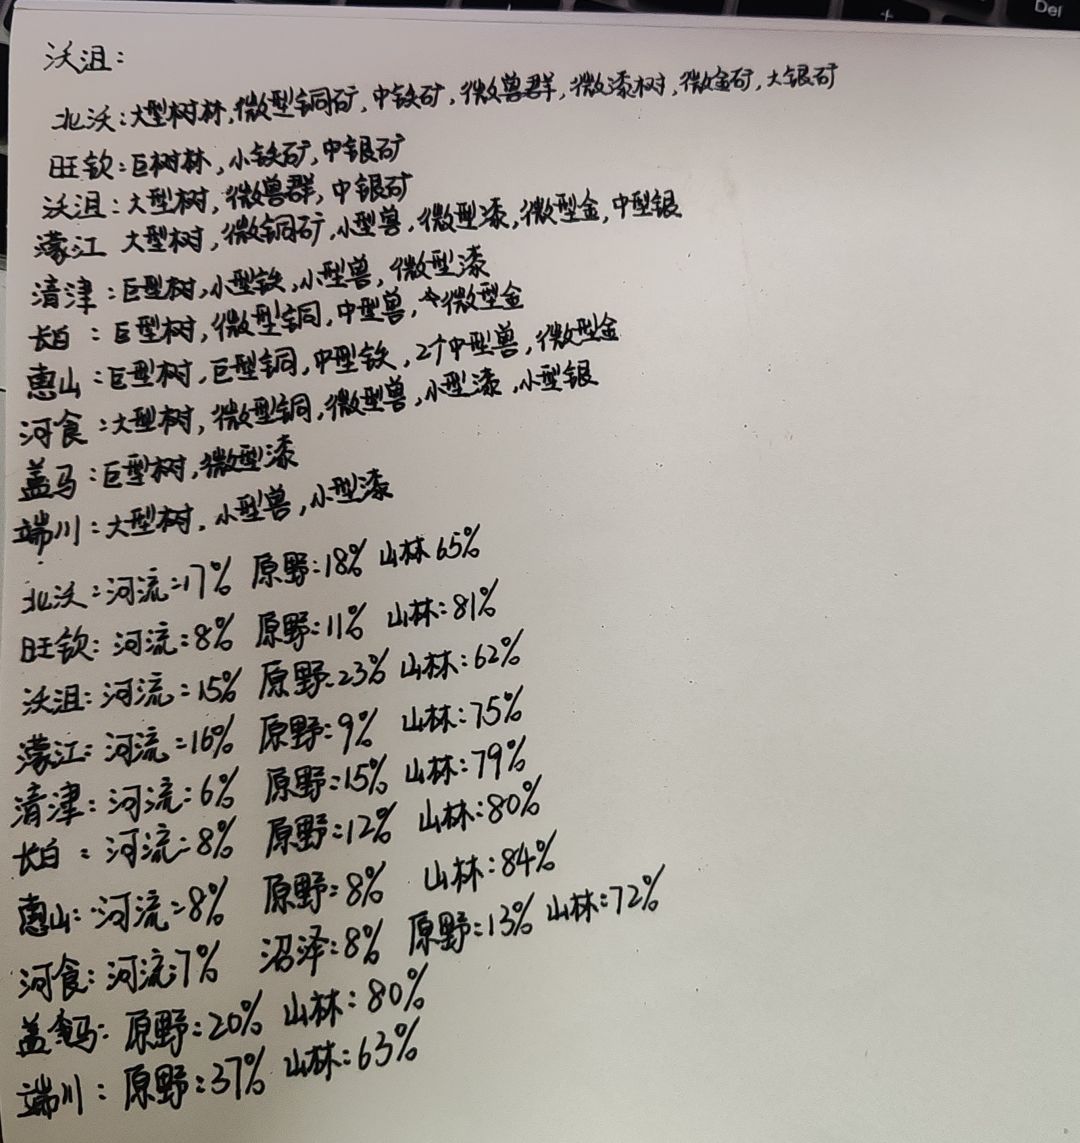 Del
沃沮：
北沃：大型树林，微型铜矿，中铁矿，微兽群，微漆树，微金矿，大银矿
旺钦：巨树林，小铁矿，中银矿
沃沮：大型树，微兽群，中银矿
濛江 大型树，微铜矿，小型兽，微型漆，微型金，中型银
清津：巨型树，小型铁，小型兽，微型漆
长白：巨型树，微型铜，中型兽，微型金
惠山：巨型树，巨型铜，中型铁，2个中型兽，微型金
河食：大型树，微型铜，微型兽，小型漆，小型银
盖马：巨型树，微型漆
端川：大型树，小型兽，小型漆
北沃：河流：17% 原野：18% 山林65%
旺钦：河流：8% 原野：11% 山林：81%
沃沮：河流：15% 原野：23% 山林：62%
濛江：河流：16% 原野：9% 山林：75%
清津：河流：6% 原野：15% 山林：79%
长白：河流：8% 原野：12% 山林：80%
惠山：河流：8% 原野：8% 山林：84%
河食：河流：7% 沼泽：8% 原野：13% 山林：72%
盖马：原野：20% 山林：80%
端川：原野：37% 山林：63%